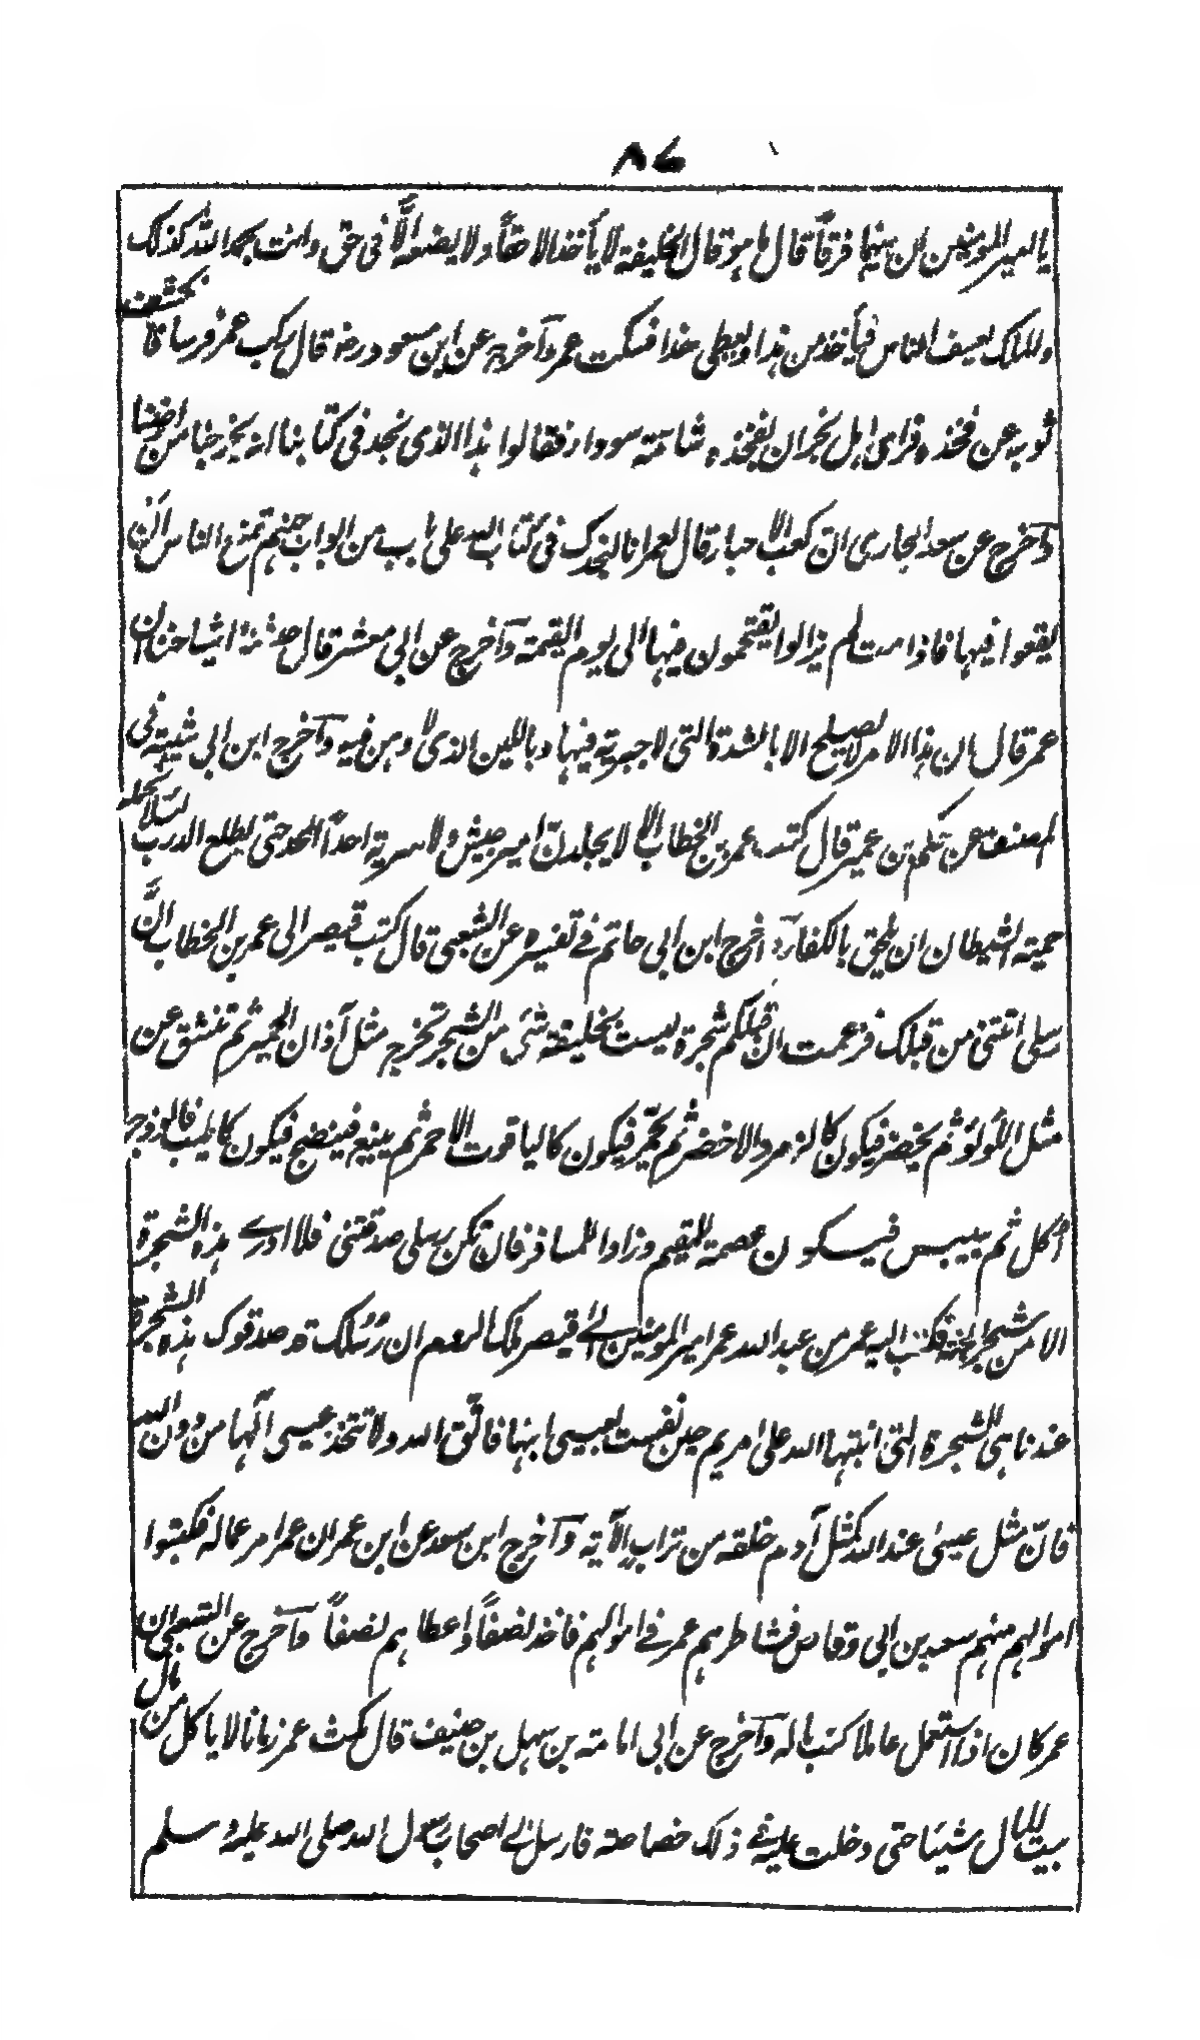 ٨٦
يا امير المومنين ان بينهما فرقاً قال ما هو قال الخليفة لا يأخذ الا حقاً ولا يضعه الّا فى حق وانت بحمد الله كذلك
والملك يعسف الناس فيأخذ من هذا ويعطى هذا فسكت عمر وآخرج عن ابن مسعود رضه قال ركب عمر فرسا فانكشف
ثوبه عن فخذه فراى اهل نجران بفخذه شامة سوداء فقالوا هذا الذى نجد فى كتابنا انه يخرجنا من ارضنا
وآخرج عن سعد الجارى ان كعب الاحبار قال لعمر انا لنجدك فى كتاب الله على باب من ابواب جهنم تمنع الناس ان
يقعوا فيها فاذا مت لم يزالوا يقتحمون فيها الى يوم القيمة وآخرج عن ابى معشر قال حدثنا اشياخنا ان
عمر قال ان هذا الامر لا يصلح الا بالشدة التى لا جبرية فيها وباللين الذى لا وهن فيه وآخرج ابن ابى شيبة فى
المصنف عن حكيم بن عمير قال كتب عمر بن الخطاب الا لا يجلدن امير جيش ولا سرية احداً الحد حتى يطلع الدرب لئلا تحمله
حمية الشيطان ان يلحق بالكفار وآخرج ابن ابى حاتم فے تفسيره عن الشعبى قال كتب قيصر الى عمر بن الخطاب انّ
رسلى اتتنى من قبلك فزعمت ان قبلكم شجرة ليست بخليقة شئ من الشجر تخرج مثل آذان الحمير ثم تنشق عن
مثل اللؤلؤ ثم يخضر فيكون كالزمرد الاخضر ثم يحمّر فيكون كالياقوت الاحمر ثم يينع فينضج فيكون كاطيب فالوذج
اُكل ثم ييبس فيكون عصمة للمقيم وزادا للمسافر فان تكن رسلى صدقتنى فلا ادرے هذه الشجرة
الا من شجر الجنة فكتب اليه عمر من عبد الله عمر امير المومنين الے قيصر ملك الروم ان رُسُلك قد صدقوك هذه الشجرة
عندنا هى الشجرة التى انبتها الله على مريم حين نفست بعيسى ابنها فاتّق الله ولا تتخذ عيسى الٓها من دون الله
فانّ مثل عيسىٰ عند الله كمثل آدم خلقه من ترابٍ الآية وآخرج ابن سعد عن ابن عمر ان عمر امر عماله فكتبوا
اموالهم منهم سعد بن ابى وقاص فشاطرهم عمر فے اموالهم فاخذ نصفاً واعطاهم نصفاً وآخرج عن الشعبى ان
عمر كان اذا استعمل عاملا كتب ماله وآخرج عن ابى امامة بن سهل بن حنيف قال مكث عمر زمانا لا ياكل من مال
بيت المال شيئا حتى دخلت عليه فے ذلك خصاصة فارسل الے اصحاب رسول الله صلى الله عليه وسلم